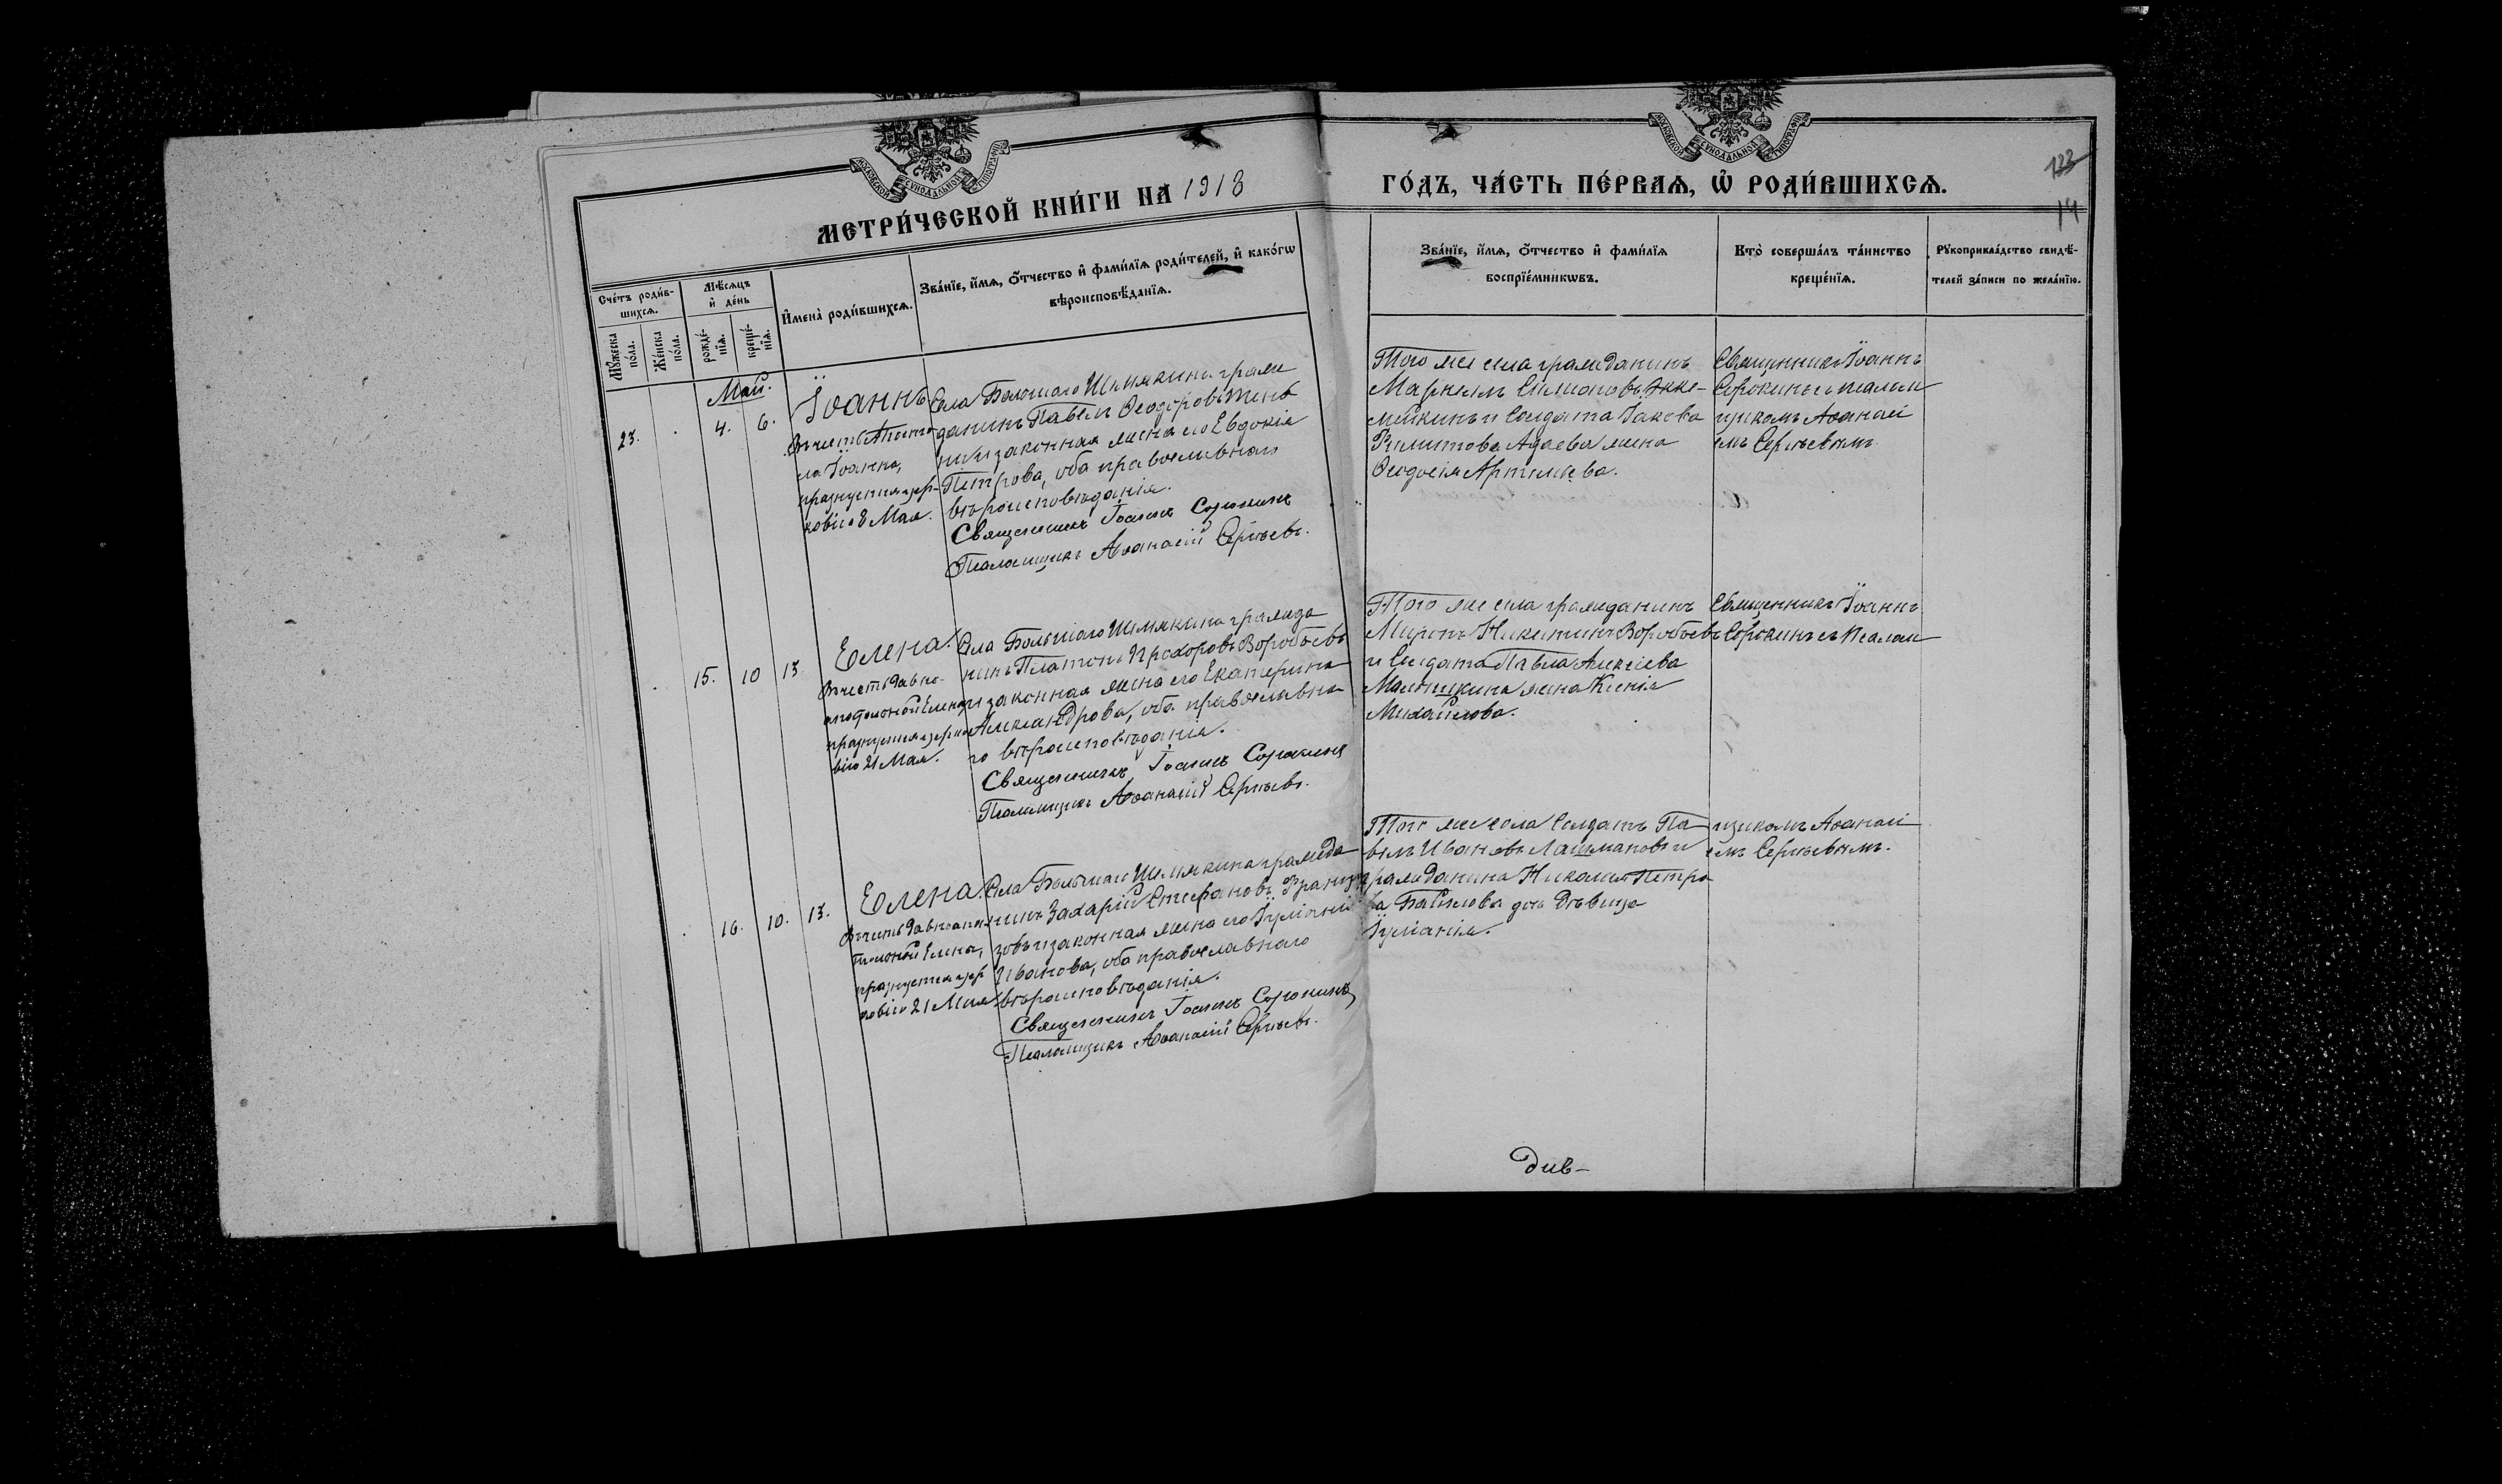 МОСКОВСКОЙ СУНОДАЛЬНОЙ ТИПОГРАФІИ
МОСКОВСКОЙ СУНОДАЛЬНОЙ ТИПОГРАФІИ
133
14
МЕТРИ́ЧЕСКОЙ КНИ́ГИ НА 1918
ГО́ДЪ, ЧА́СТЬ ПЕ́РВАѦ, Ѡ҆ РОДИ́ВШИХСѦ.
Сче́тъ роди́в-
шихсѧ.
Мѣ́сяцъ
и҆ де́нь
И҆мена̀ роди́вшихсѧ.
Зва́нїе, и҆́мѧ, ѻ҆́тчество и҆ фами́лїѧ роди́телей, и҆ како́гѡ
вѣроисповѣ́данїѧ.
Мꙋ́жеска
по́ла.
Же́нска
по́ла.
рожде́-
нїѧ.
креще́-
нїѧ.
Зва́нїе, и҆́мѧ, ѻ҆́тчество и҆ фами́лїѧ
воспрїе́мникѡвъ.
Кто̀ соверша́лъ та́инство
креще́нїѧ.
Рꙋкоприкла́дство свидѣ́-
телей за́писи по жела́нїю.
Май.
23.
4.
6.
Іоаннъ
Въ честь Апосто
ла Іоанна,
празднуется цер-
ковію 8 Мая.
Села Большаго Шемякина граж
данинъ Павелъ Ѳеодоровъ
и законная жена его Евдокія
Петрова, оба православнаго
вѣроисповѣданія.
Священникъ Іоаннъ Сорокинъ
Псаломщикъ Аѳанасій Сергѣевъ.
Того же села гражданинъ
Маркелъ Симоновъ Экке-
мейкинъ и Солдата Іакова
Филиппова Адаева жена
Ѳеодосія Артемьева.
Священникъ Іоаннъ
Сорокинъ съ псалом
щикомъ Аѳанасі
емъ Сергѣевымъ.
15.
10
13
Елена.
Въ честь равно-
апостольной Елены,
празднуется церко
вію 21 Мая.
Села Большаго Шемякина гражда
нинъ Платонъ Прохоровъ Воробьевъ
и законная жена его Екатерина
Александрова, оба православна
го вѣроисповѣданія.
Священникъ Іоаннъ Сорокинъ
Псаломщикъ Аѳанасій Сергѣевъ.
Того же села гражданинъ
Миронъ Никитинъ Воробьевъ
и Солдата Павла Алексіева
Малышкина жена Ксенія
Михайлова.
Священникъ Іоаннъ
Сорокинъ съ Псалом
16.
10.
13.
Елена.
Въ честь равноапос
тольной Елены,
празднуется цер
ковію 21 Мая.
Села Большаго Шемякина гражда
нинъ Захарій Стефановъ Францу
зовъ и законная жена его Іуліанія
Иванова, оба православнаго
вѣроисповѣданія.
Священникъ Іоаннъ Сорокинъ
Псаломщикъ Аѳанасій Сергѣевъ.
Того же села Солдатъ Па
велъ Ивановъ Лашмановъ и
гражданина Николая Петро
ва Байкова дочь дѣвица
Іуліанія.
щикомъ Аѳанасі
емъ Сергѣевымъ.